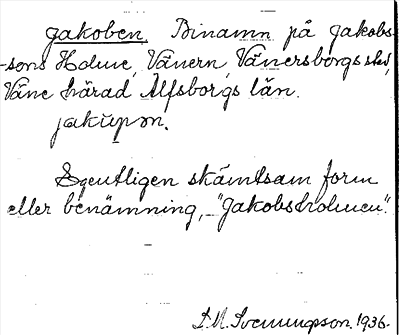 Jakoben. Binamn på Jakobs-
-sons Holme, Vänern, Vänersborgs skd,
Väne härad Älfsborgs län.
jakupən.
Egentligen skämtsam form
eller benämning, "Jakobsholmen".
S.M. Svenningson. 1936.